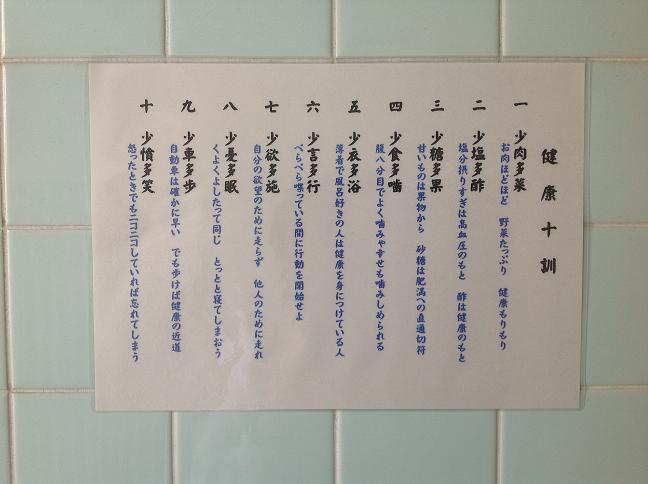 健康十訓
一 少肉多菜
お肉ほどほど 野菜たっぷり 健康もりもり
二 少塩多酢
塩分摂りすぎは高血圧のもと 酢は健康のもと
三 少糖多果
甘いものは果物から 砂糖は肥満への直通切符
四 少食多噛
腹八分目でよく噛みゃ幸せも噛みしめられる
五 少衣多浴
薄着で風呂好きの人は健康を身につけている人
六 少言多行
べらべら喋っている間に行動を開始せよ
七 少欲多施
自分の欲望のために走らず 他人のために走れ
八 少憂多眠
くよくよしたって同じ とっとと寝てしまおう
九 少車多歩
自動車は確かに早い でも歩けば健康の近道
十 少憤多笑
怒ったときでもニコニコしていれば忘れてしまう